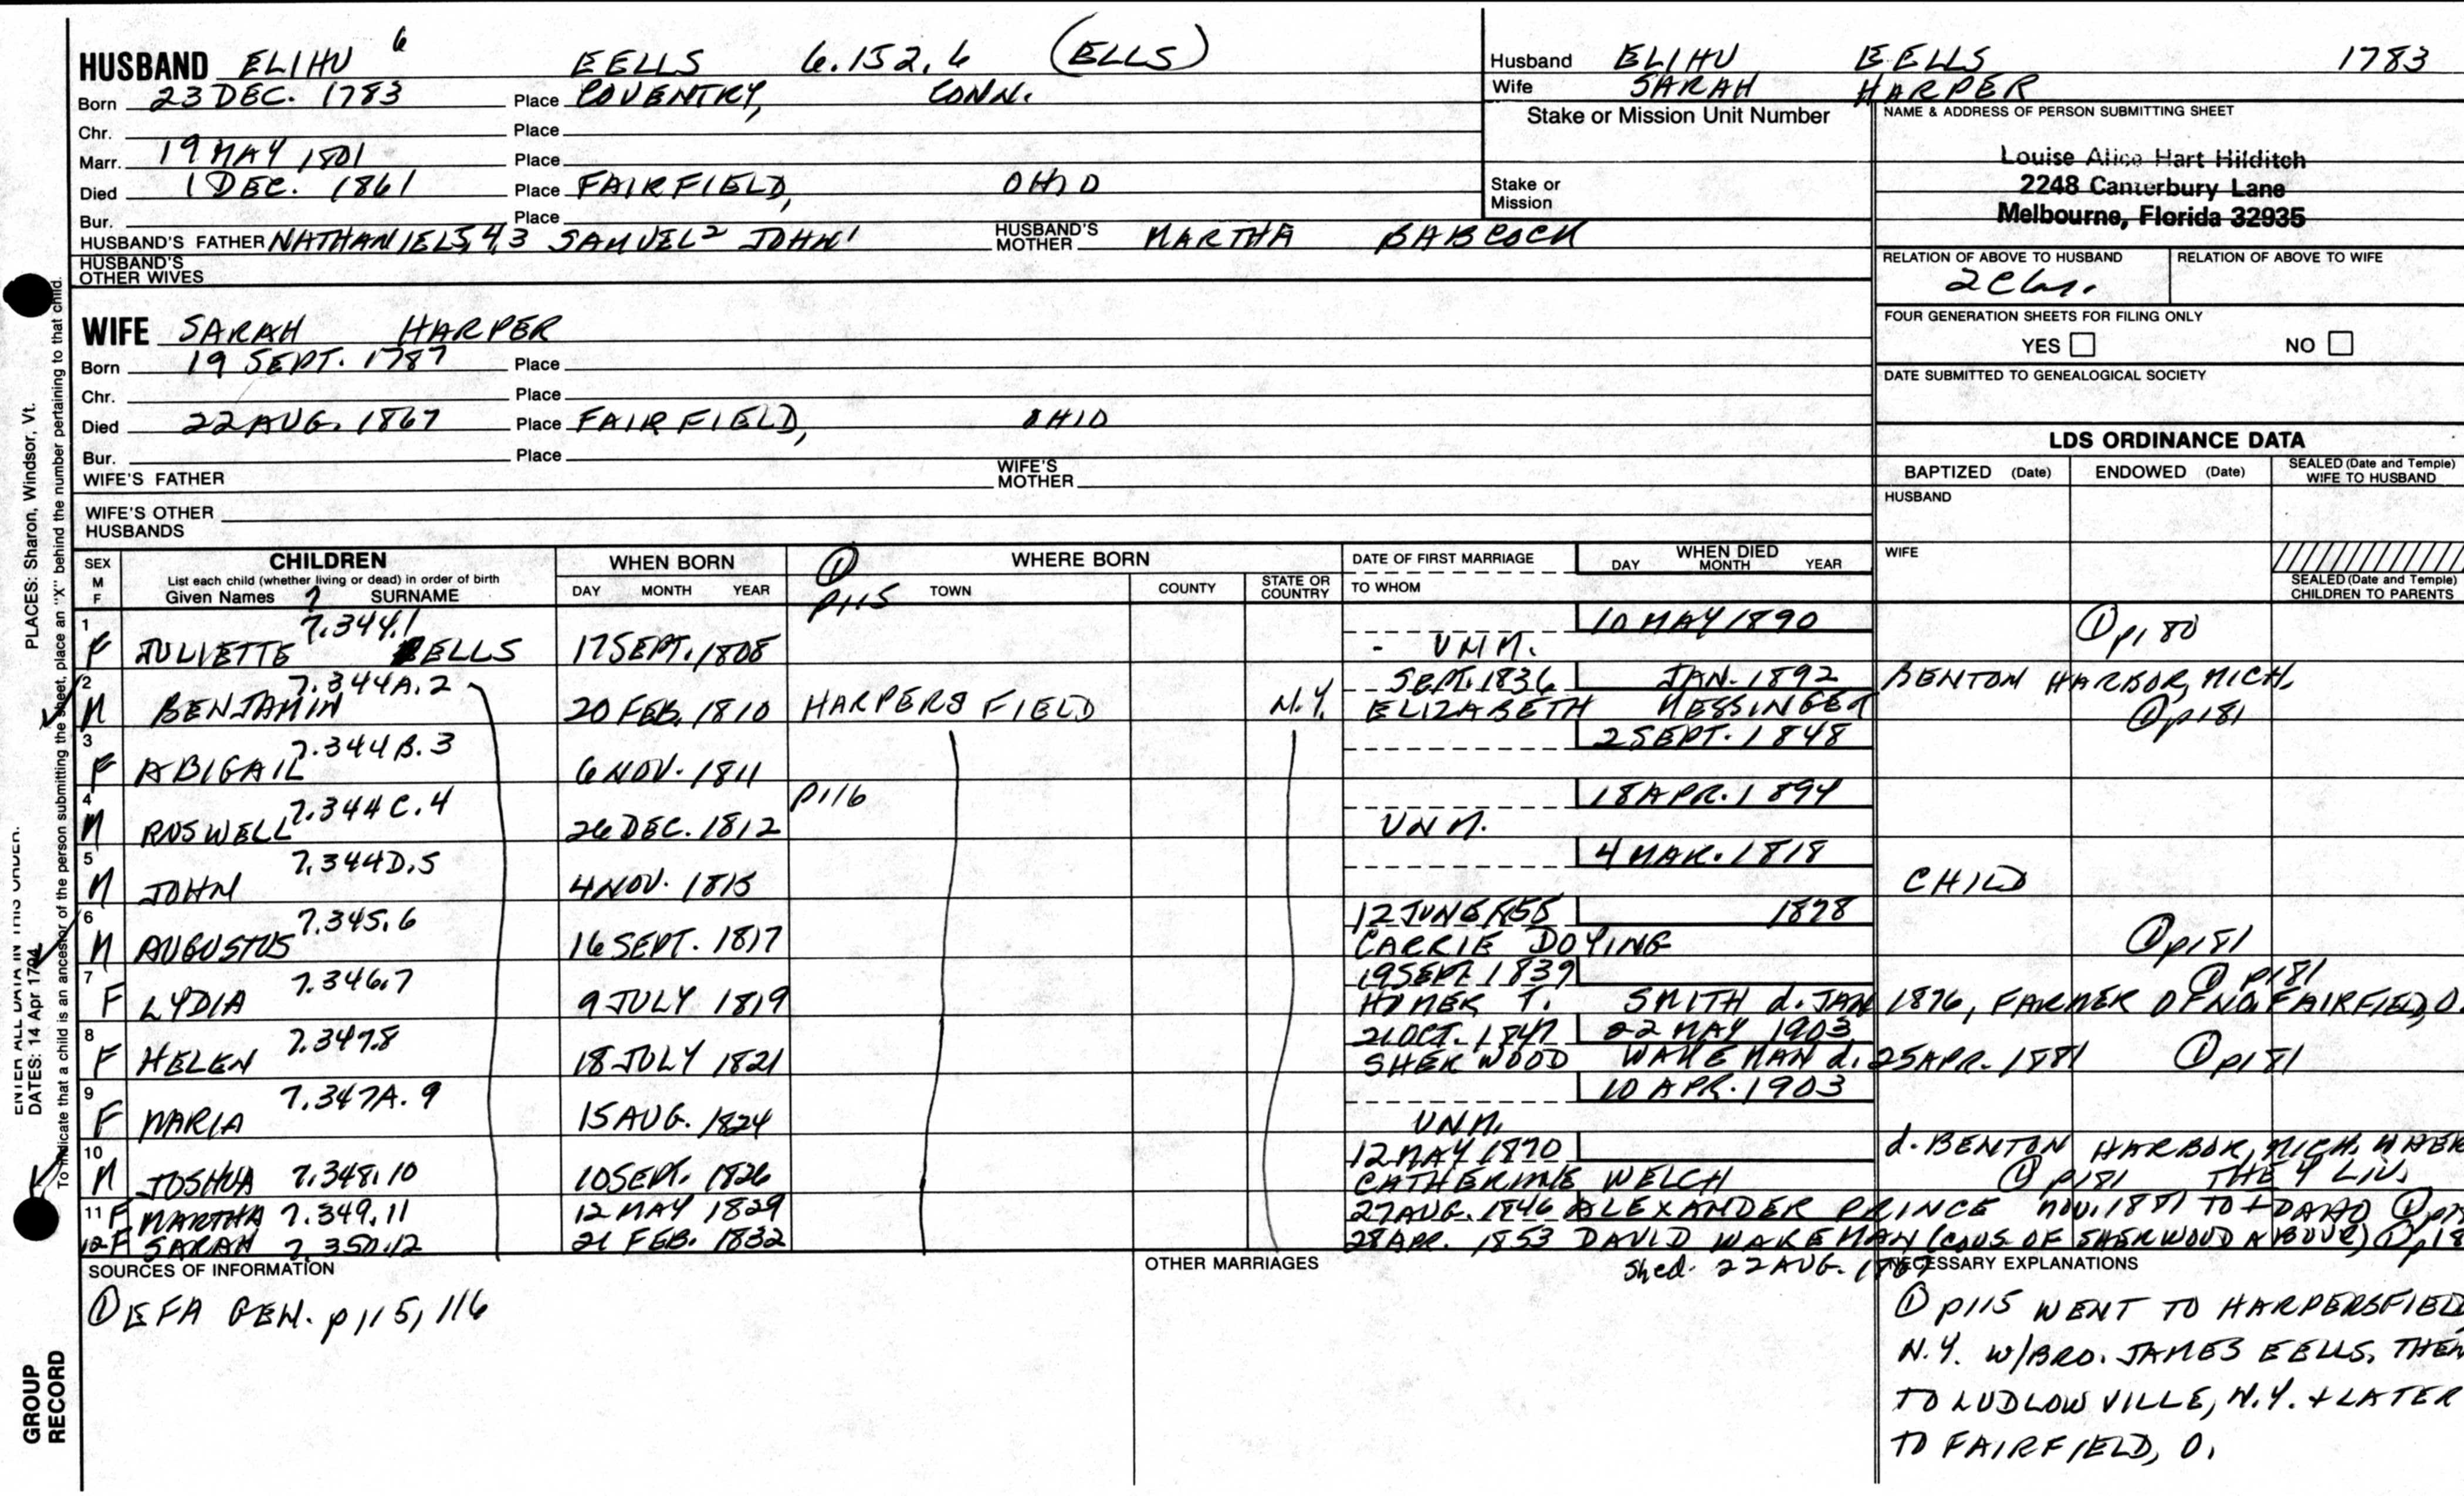 HUSBAND ELIHU 6 EELLS 6.152.6 (ELLS)
Born 23 DEC. 1783 Place COVENTRY, CONN.
Chr. Place
Marr. 19 MAY 1801 Place
Died 1 DEC. 1861 Place FAIRFIELD, OHIO
Bur. Place
HUSBAND'S FATHER NATHANIEL 5,4,3 SAMUEL 2 JOHN 1 HUSBAND'S MOTHER MARTHA BABCOCK
HUSBAND'S OTHER WIVES
Husband ELIHU EELLS 1783
Wife SARAH HARPER
Stake or Mission Unit Number
Stake or Mission
NAME & ADDRESS OF PERSON SUBMITTING SHEET
Louise Alice Hart Hilditch
2248 Canterbury Lane
Melbourne, Florida 32935
RELATION OF ABOVE TO HUSBAND RELATION OF ABOVE TO WIFE
FOUR GENERATION SHEETS FOR FILING ONLY
YES NO
DATE SUBMITTED TO GENEALOGICAL SOCIETY
WIFE SARAH HARPER
Born 19 SEPT. 1787 Place
Chr. Place
Died 22 AUG. 1867 Place FAIRFIELD, OHIO
Bur. Place
WIFE'S FATHER WIFE'S MOTHER
WIFE'S OTHER HUSBANDS
LDS ORDINANCE DATA
BAPTIZED (Date) ENDOWED (Date) SEALED (Date and Temple) WIFE TO HUSBAND
HUSBAND
WIFE
SEALED (Date and Temple) CHILDREN TO PARENTS
SEX M F CHILDREN WHEN BORN ① WHERE BORN DATE OF FIRST MARRIAGE WHEN DIED
List each child (whether living or dead) in order of birth DAY MONTH YEAR TOWN COUNTY STATE OR COUNTRY TO WHOM DAY MONTH YEAR
Given Names 7 SURNAME p115
1 7.344.1 10 MAY 1890 ① p180
F JULIETTE EELLS 17 SEPT. 1808 - UNM.
2 7.344A.2 SEPT. 1836 JAN. 1892 BENTON HARBOR, MICH.
M BENJAMIN 20 FEB. 1810 HARPERS FIELD N.Y. ELIZABETH MESSINGER ① p181
3 7.344B.3 2 SEPT. 1848
F ABIGAIL 6 NOV. 1811
4 7.344C.4 p116 18 APR. 1894
M ROSWELL 26 DEC. 1812 UNM.
5 7.344D.5 4 MAR. 1818
M JOHN 4 NOV. 1815 CHILD
6 7.345.6 12 JUNE 1855 1878
M AUGUSTUS 16 SEPT. 1817 CARRIE DOYING ① p181
7 7.346.7 19 SEPT. 1839 ① p181
F LYDIA 9 JULY 1819 HOMER T. SMITH d. JAN 1876, FARMER OF NO. FAIRFIELD, O.
8 7.347.8 21 OCT. 1847 22 MAY 1903
F HELEN 18 JULY 1821 SHERWOOD WAKEMAN d. 25 APR. 1881 ① p181
9 7.347A.9 10 APR. 1903
F MARIA 15 AUG. 1824 UNM.
10 12 MAY 1870 d. BENTON HARBOR, MICH. WHERE
M JOSHUA 7.348.10 10 SEPT. 1826 CATHERINE WELCH ① p181 THEY LIV.
11 F MARTHA 7.349.11 12 MAY 1829 27 AUG. 1846 ALEXANDER PRINCE NOV. 1881 TO IDAHO ①
12 F SARAH 7.350.12 21 FEB. 1832 28 APR. 1853 DAVID WAKEMAN (COUS OF SHERWOOD ABOVE) ①
SOURCES OF INFORMATION
① EFA GEN. p115, 116
OTHER MARRIAGES
She d. 22 AUG. 1867
NECESSARY EXPLANATIONS
① p115 WENT TO HARPERSFIELD
N.Y. W/BRO. JAMES EELLS, THEN
TO LUDLOWVILLE, N.Y. + LATER
TO FAIRFIELD, O.
ENTER ALL DATA IN THIS ORDER.
DATES: 14 Apr 1794 PLACES: Sharon, Windsor, Vt.
To indicate that a child is an ancestor of the person submitting the sheet, place an "X" behind the number pertaining to that child.
GROUP RECORD